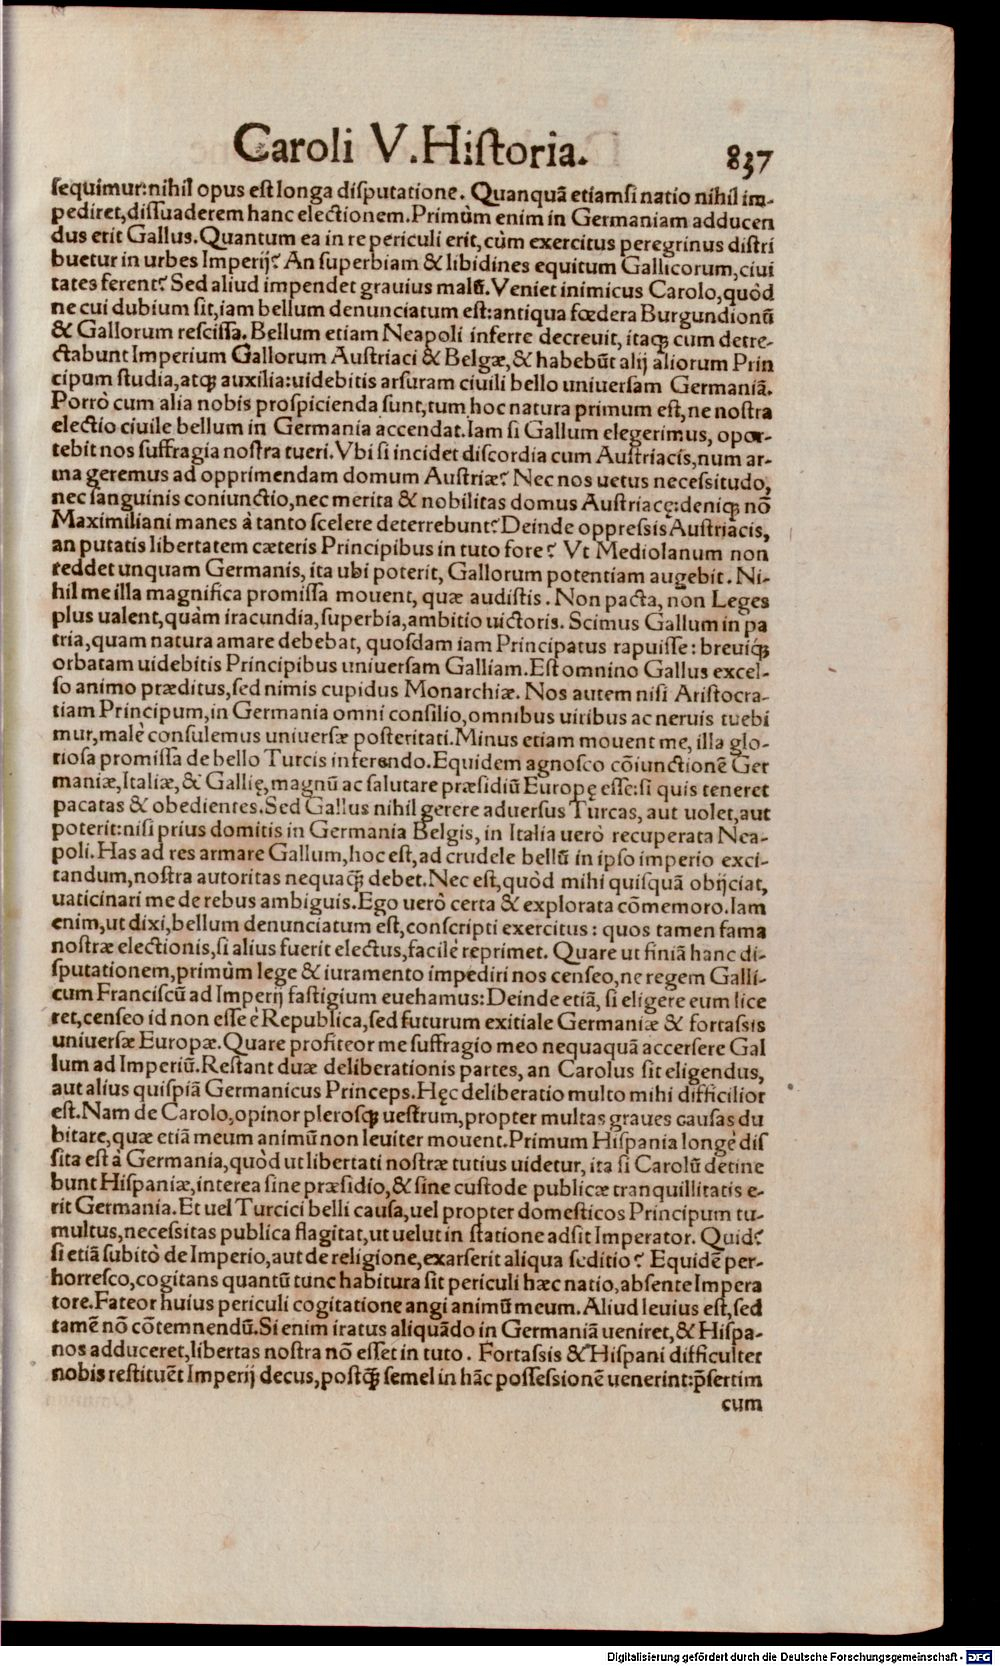 Caroli V. Hiſtoria. 837
ſequimur: nihil opus eſt longa diſputatione. Quanquā etiamſi natio nihil im-
pediret, diſſuaderem hanc electionem. Primùm enim in Germaniam adducen
dus erit Gallus. Quantum ea in re periculi erit, cùm exercitus peregrinus diſtri
buetur in urbes Imperij? An ſuperbiam & libidines equitum Gallicorum, ciui
tates ferent? Sed aliud impendet grauius malū. Veniet inimicus Carolo, quòd
ne cui dubium ſit, iam bellum denunciatum eſt: antiqua fœdera Burgundionū
& Gallorum reſciſſa. Bellum etiam Neapoli inferre decreuit, itaq; cum detre-
ctabunt Imperium Gallorum Auſtriaci & Belgæ, & habebūt alij aliorum Prin
cipum ſtudia, atq; auxilia: uidebitis arſuram ciuili bello uniuerſam Germaniā.
Porrò cum alia nobis proſpicienda ſunt, tum hoc natura primum eſt, ne noſtra
electio ciuile bellum in Germania accendat. Iam ſi Gallum elegerimus, opor-
tebit nos ſuffragia noſtra tueri. Vbi ſi incidet diſcordia cum Auſtriacis, num ar-
ma geremus ad opprimendam domum Auſtriæ? Nec nos uetus neceſsitudo,
nec ſanguinis coniunctio, nec merita & nobilitas domus Auſtriacę: deniq; nō
Maximiliani manes à tanto ſcelere deterrebunt? Deinde oppreſsis Auſtriacis,
an putatis libertatem cæteris Principibus in tuto fore? Vt Mediolanum non
reddet unquam Germanis, ita ubi poterit, Gallorum potentiam augebit. Ni-
hil me illa magnifica promiſſa mouent, quæ audiſtis. Non pacta, non Leges
plus ualent, quàm iracundia, ſuperbia, ambitio uictoris. Scimus Gallum in pa
tria, quam natura amare debebat, quoſdam iam Principatus rapuiſſe: breuiq́;
orbatam uidebitis Principibus uniuerſam Galliam. Eſt omnino Gallus excel-
ſo animo præditus, ſed nimis cupidus Monarchiæ. Nos autem niſi Ariſtocra-
tiam Principum, in Germania omni conſilio, omnibus uiribus ac neruis tuebi
mur, malè conſulemus uniuerſæ poſteritati. Minus etiam mouent me, illa glo-
rioſa promiſſa de bello Turcis inferendo. Equidem agnoſco cōiunctionē Ger
maniæ, Italiæ, & Gallię, magnū ac ſalutare præſidiū Europę eſſe: ſi quis teneret
pacatas & obedientes. Sed Gallus nihil gerere aduerſus Turcas, aut uolet, aut
poterit: niſi prius domitis in Germania Belgis, in Italia uerò recuperata Nea-
poli. Has ad res armare Gallum, hoc eſt, ad crudele bellū in ipſo imperio exci-
tandum, noſtra autoritas nequaq̄; debet. Nec eſt, quòd mihi quiſquā obijciat,
uaticinari me de rebus ambiguis. Ego uerò certa & explorata cōmemoro. Iam
enim, ut dixi, bellum denunciatum eſt, conſcripti exercitus: quos tamen fama
noſtræ electionis, ſi alius fuerit electus, facilè reprimet. Quare ut finiā hanc di-
ſputationem, primùm lege & iuramento impediri nos cenſeo, ne regem Galli-
cum Franciſcū ad Imperij faſtigium euehamus: Deinde etiā, ſi eligere eum lice
ret, cenſeo id non eſſe è Republica, ſed futurum exitiale Germaniæ & fortaſsis
uniuerſæ Europæ. Quare profiteor me ſuffragio meo nequaquā accerſere Gal
lum ad Imperiū. Reſtant duæ deliberationis partes, an Carolus ſit eligendus,
aut alius quiſpiā Germanicus Princeps. Hęc deliberatio multo mihi difficilior
eſt. Nam de Carolo, opinor pleroſq; ueſtrum, propter multas graues cauſas du
bitare, quæ etiā meum animū non leuiter mouent. Primum Hiſpania longè diſ
ſita eſt à Germania, quòd ut libertati noſtræ tutius uidetur, ita ſi Carolū detine
bunt Hiſpaniæ, interea ſine præſidio, & ſine cuſtode publicæ tranquillitatis e-
rit Germania. Et uel Turcici belli cauſa, uel propter domeſticos Principum tu-
multus, neceſsitas publica flagitat, ut uelut in ſtatione adſit Imperator. Quid?
ſi etiā ſubitò de Imperio, aut de religione, exarſerit aliqua ſeditio? Equidē per-
horreſco, cogitans quantū tunc habitura ſit periculi hæc natio, abſente Impera
tore. Fateor huius periculi cogitatione angi animū meum. Aliud leuius eſt, ſed
tamē nō cōtemnendū. Si enim iratus aliquādo in Germaniā ueniret, & Hiſpa-
nos adduceret, libertas noſtra nō eſſet in tuto. Fortaſsis & Hiſpani difficulter
nobis reſtituēt Imperij decus, poſtq̄; ſemel in hāc poſſeſsionē uenerint: p̄ſertim
cum
Digitalisierung gefördert durch die Deutsche Forschungsgemeinschaft - DFG